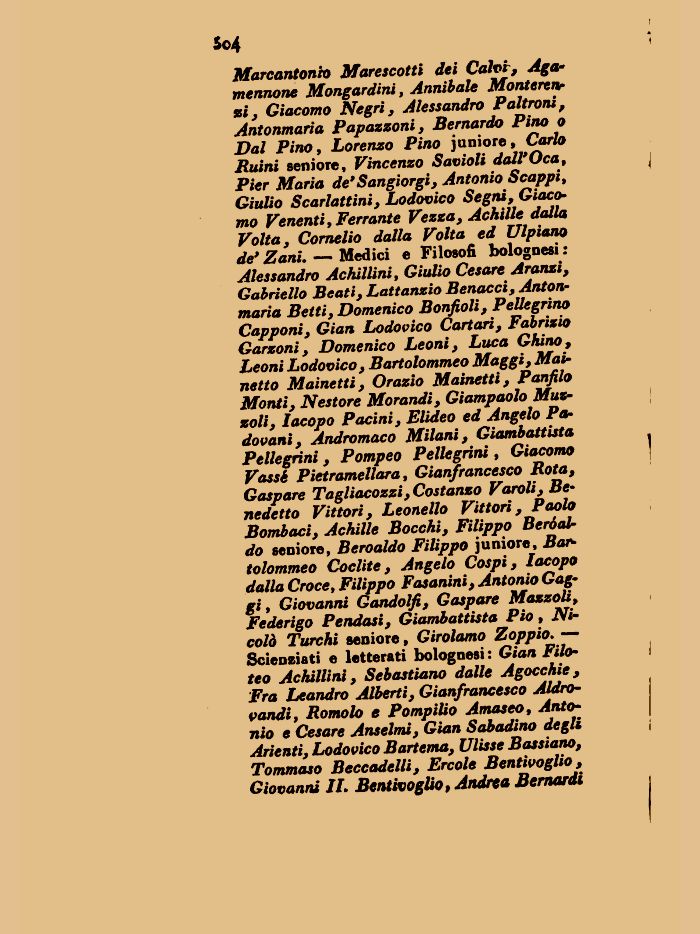 504
Marcantonio Marescotti dei Calvi, Aga-
mennone Mongardini, Annibale Monteren-
zi, Giacomo Negri, Alessandro Paltroni,
Antonmaria Papazzoni, Bernardo Pino o
Dal Pino, Lorenzo Pino juniore, Carlo
Ruini seniore, Vincenzo Savioli dall'Oca,
Pier Maria de' Sangiorgi, Antonio Scappi,
Giulio Scarlattini, Lodovico Segni, Giaco-
mo Venenti, Ferrante Vezza, Achille dalla
Volta, Cornelio dalla Volta ed Ulpiano
de' Zani. — Medici e Filosofi bolognesi:
Alessandro Achillini, Giulio Cesare Aranzi,
Gabriello Beati, Lattanzio Benacci, Anton-
maria Betti, Domenico Bonfioli, Pellegrino
Capponi, Gian Lodovico Cartari, Fabrizio
Garzoni, Domenico Leoni, Luca Ghino,
Leoni Lodovico, Bartolommeo Maggi, Mai-
netto Mainetti, Orazio Mainetti, Panfilo
Monti, Nestore Morandi, Giampaolo Muz-
zoli, Iacopo Pacini, Elideo ed Angelo Pa-
dovani, Andromaco Milani, Giambattista
Pellegrini, Pompeo Pellegrini, Giacomo
Vassé Pietramellara, Gianfrancesco Rota,
Gaspare Tagliacozzi, Costanzo Varoli, Be-
nedetto Vittori, Leonello Vittori, Paolo
Bombaci, Achille Bocchi, Filippo Beróal-
do seniore, Beroaldo Filippo juniore, Bar-
tolommeo Coclite, Angelo Cospi, Iacopo
dalla Croce, Filippo Fasanini, Antonio Gag-
gi, Giovanni Gandolfi, Gaspare Mazzoli,
Federigo Pendasi, Giambattista Pio, Ni-
colò Turchi seniore, Girolamo Zoppio. —
Scienziati e letterati bolognesi: Gian Filo-
teo Achillini, Sebastiano dalle Agocchie,
Fra Leandro Alberti, Gianfrancesco Aldro-
vandi, Romolo e Pompilio Amaseo, Anto-
nio e Cesare Anselmi, Gian Sabadino degli
Arienti, Lodovico Bartema, Ulisse Bassiano,
Tommaso Beccadelli, Ercole Bentivoglio,
Giovanni II. Bentivoglio, Andrea Bernardi